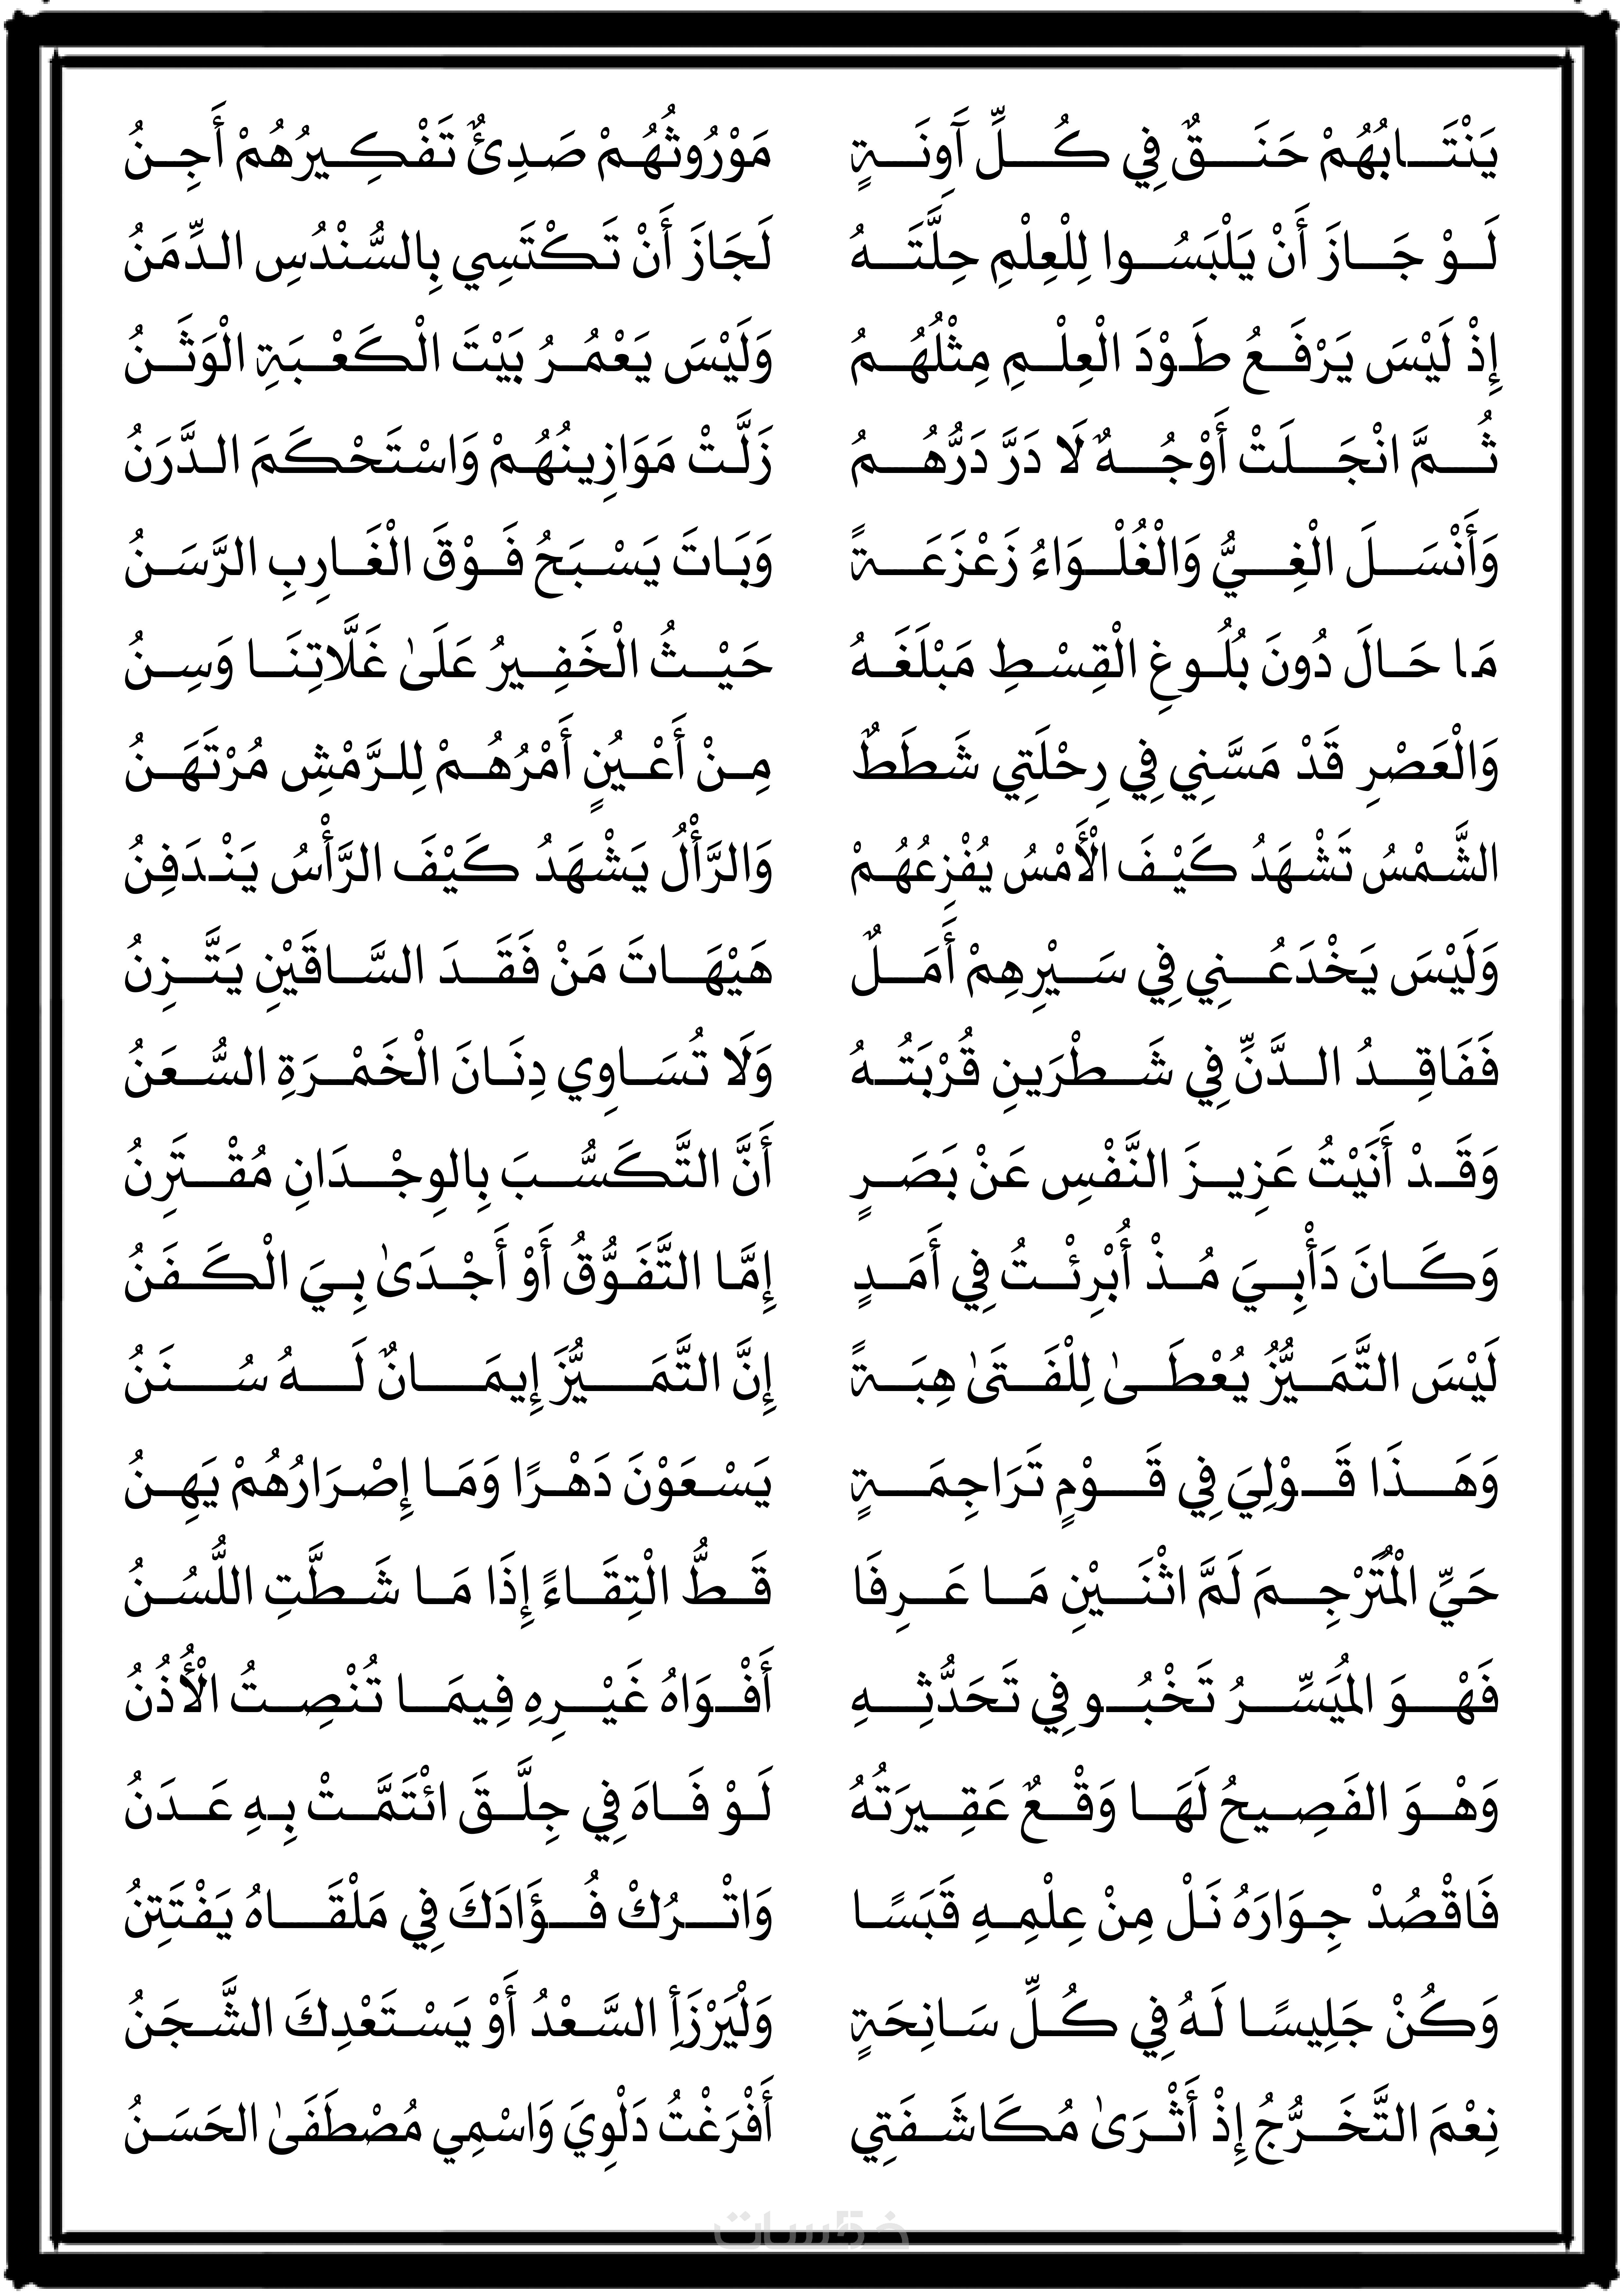 يَنْتَابُهُمْ حَنَقٌ فِي كُلِّ آَوِنَةٍ مَوْرُوثُهُمْ صَدِئٌ تَفْكِيرُهُمْ أَجِنُ
لَوْ جَازَ أَنْ يَلْبَسُوا لِلْعِلْمِ حِلَّتَهُ لَجَازَ أَنْ تَكْتَسِي بِالسُّنْدُسِ الدِّمَنُ
إِذْ لَيْسَ يَرْفَعُ طَوْدَ الْعِلْمِ مِثْلُهُمُ وَلَيْسَ يَعْمُرُ بَيْتَ الْكَعْبَةِ الْوَثَنُ
ثُمَّ انْجَلَتْ أَوْجُهٌ لَا دَرَّ دَرُّهُمُ زَلَّتْ مَوَازِينُهُمْ وَاسْتَحْكَمَ الدَّرَنُ
وَأَنْسَلَ الْغِيُّ وَالْغُلْوَاءُ زَعْزَعَةً وَبَاتَ يَسْبَحُ فَوْقَ الْغَارِبِ الرَّسَنُ
مَا حَالَ دُونَ بُلُوغِ الْقِسْطِ مَبْلَغَهُ حَيْثُ الْخَفِيرُ عَلَىٰ غَلَّاتِنَا وَسِنُ
وَالْعَصْرِ قَدْ مَسَّنِي فِي رِحْلَتِي شَطَطٌ مِنْ أَعْيُنٍ أَمْرُهُمْ لِلرَّمْشِ مُرْتَهَنُ
الشَّمْسُ تَشْهَدُ كَيْفَ الْأَمْسُ يُفْزِعُهُمْ وَالرَّأْلُ يَشْهَدُ كَيْفَ الرَّأْسُ يَنْدَفِنُ
وَلَيْسَ يَخْدَعُنِي فِي سَيْرِهِمْ أَمَلٌ هَيْهَاتَ مَنْ فَقَدَ السَّاقَيْنِ يَتَّزِنُ
فَفَاقِدُ الدَّنِّ فِي شَطْرَينِ قُرْبَتُهُ وَلَا تُسَاوِي دِنَانَ الْخَمْرَةِ السُّعَنُ
وَقَدْ أَنَيْتُ عَزِيزَ النَّفْسِ عَنْ بَصَرٍ أَنَّ التَّكَسُّبَ بِالوِجْدَانِ مُقْتَرِنُ
وَكَانَ دَأْبِيَ مُذْ أُبْرِئْتُ فِي أَمَدٍ إِمَّا التَّفَوُّقُ أَوْ أَجْدَىٰ بِيَ الْكَفَنُ
لَيْسَ التَّمَيُّزُ يُعْطَىٰ لِلْفَتَىٰ هِبَةً إِنَّ التَّمَيُّزَ إِيمَانٌ لَهُ سُنَنُ
وَهَذَا قَوْلِيَ فِي قَوْمٍ تَرَاجِمَةٍ يَسْعَوْنَ دَهْرًا وَمَا إِصْرَارُهُمْ يَهِنُ
حَيِّ الْمُتَرْجِمَ لَمَّ اثْنَيْنِ مَا عَرِفَا قَطُّ الْتِقَاءً إِذَا مَا شَطَّتِ اللُّسُنُ
فَهْوَ المُيَسِّرُ تَخْبُو فِي تَحَدُّثِهِ أَفْوَاهُ غَيْرِهِ فِيمَا تُنْصِتُ الْأُذُنُ
وَهْوَ الفَصِيحُ لَهَا وَقْعٌ عَقِيرَتُهُ لَوْ فَاهَ فِي جِلَّقَ ائْتَمَّتْ بِهِ عَدَنُ
فَاقْصُدْ جِوَارَهُ نَلْ مِنْ عِلْمِهِ قَبَسًا وَاتْرُكْ فُؤَادَكَ فِي مَلْقَاهُ يَفْتَتِنُ
وَكُنْ جَلِيسًا لَهُ فِي كُلِّ سَانِحَةٍ وَلْيَرْزَأِ السَّعْدُ أَوْ يَسْتَعْدِكَ الشَّجَنُ
نِعْمَ التَّخَرُّجُ إِذْ أَثْرَىٰ مُكَاشَفَتِي أَفْرَغْتُ دَلْوِيَ وَاسْمِي مُصْطَفَىٰ الحَسَنُ
خمسات